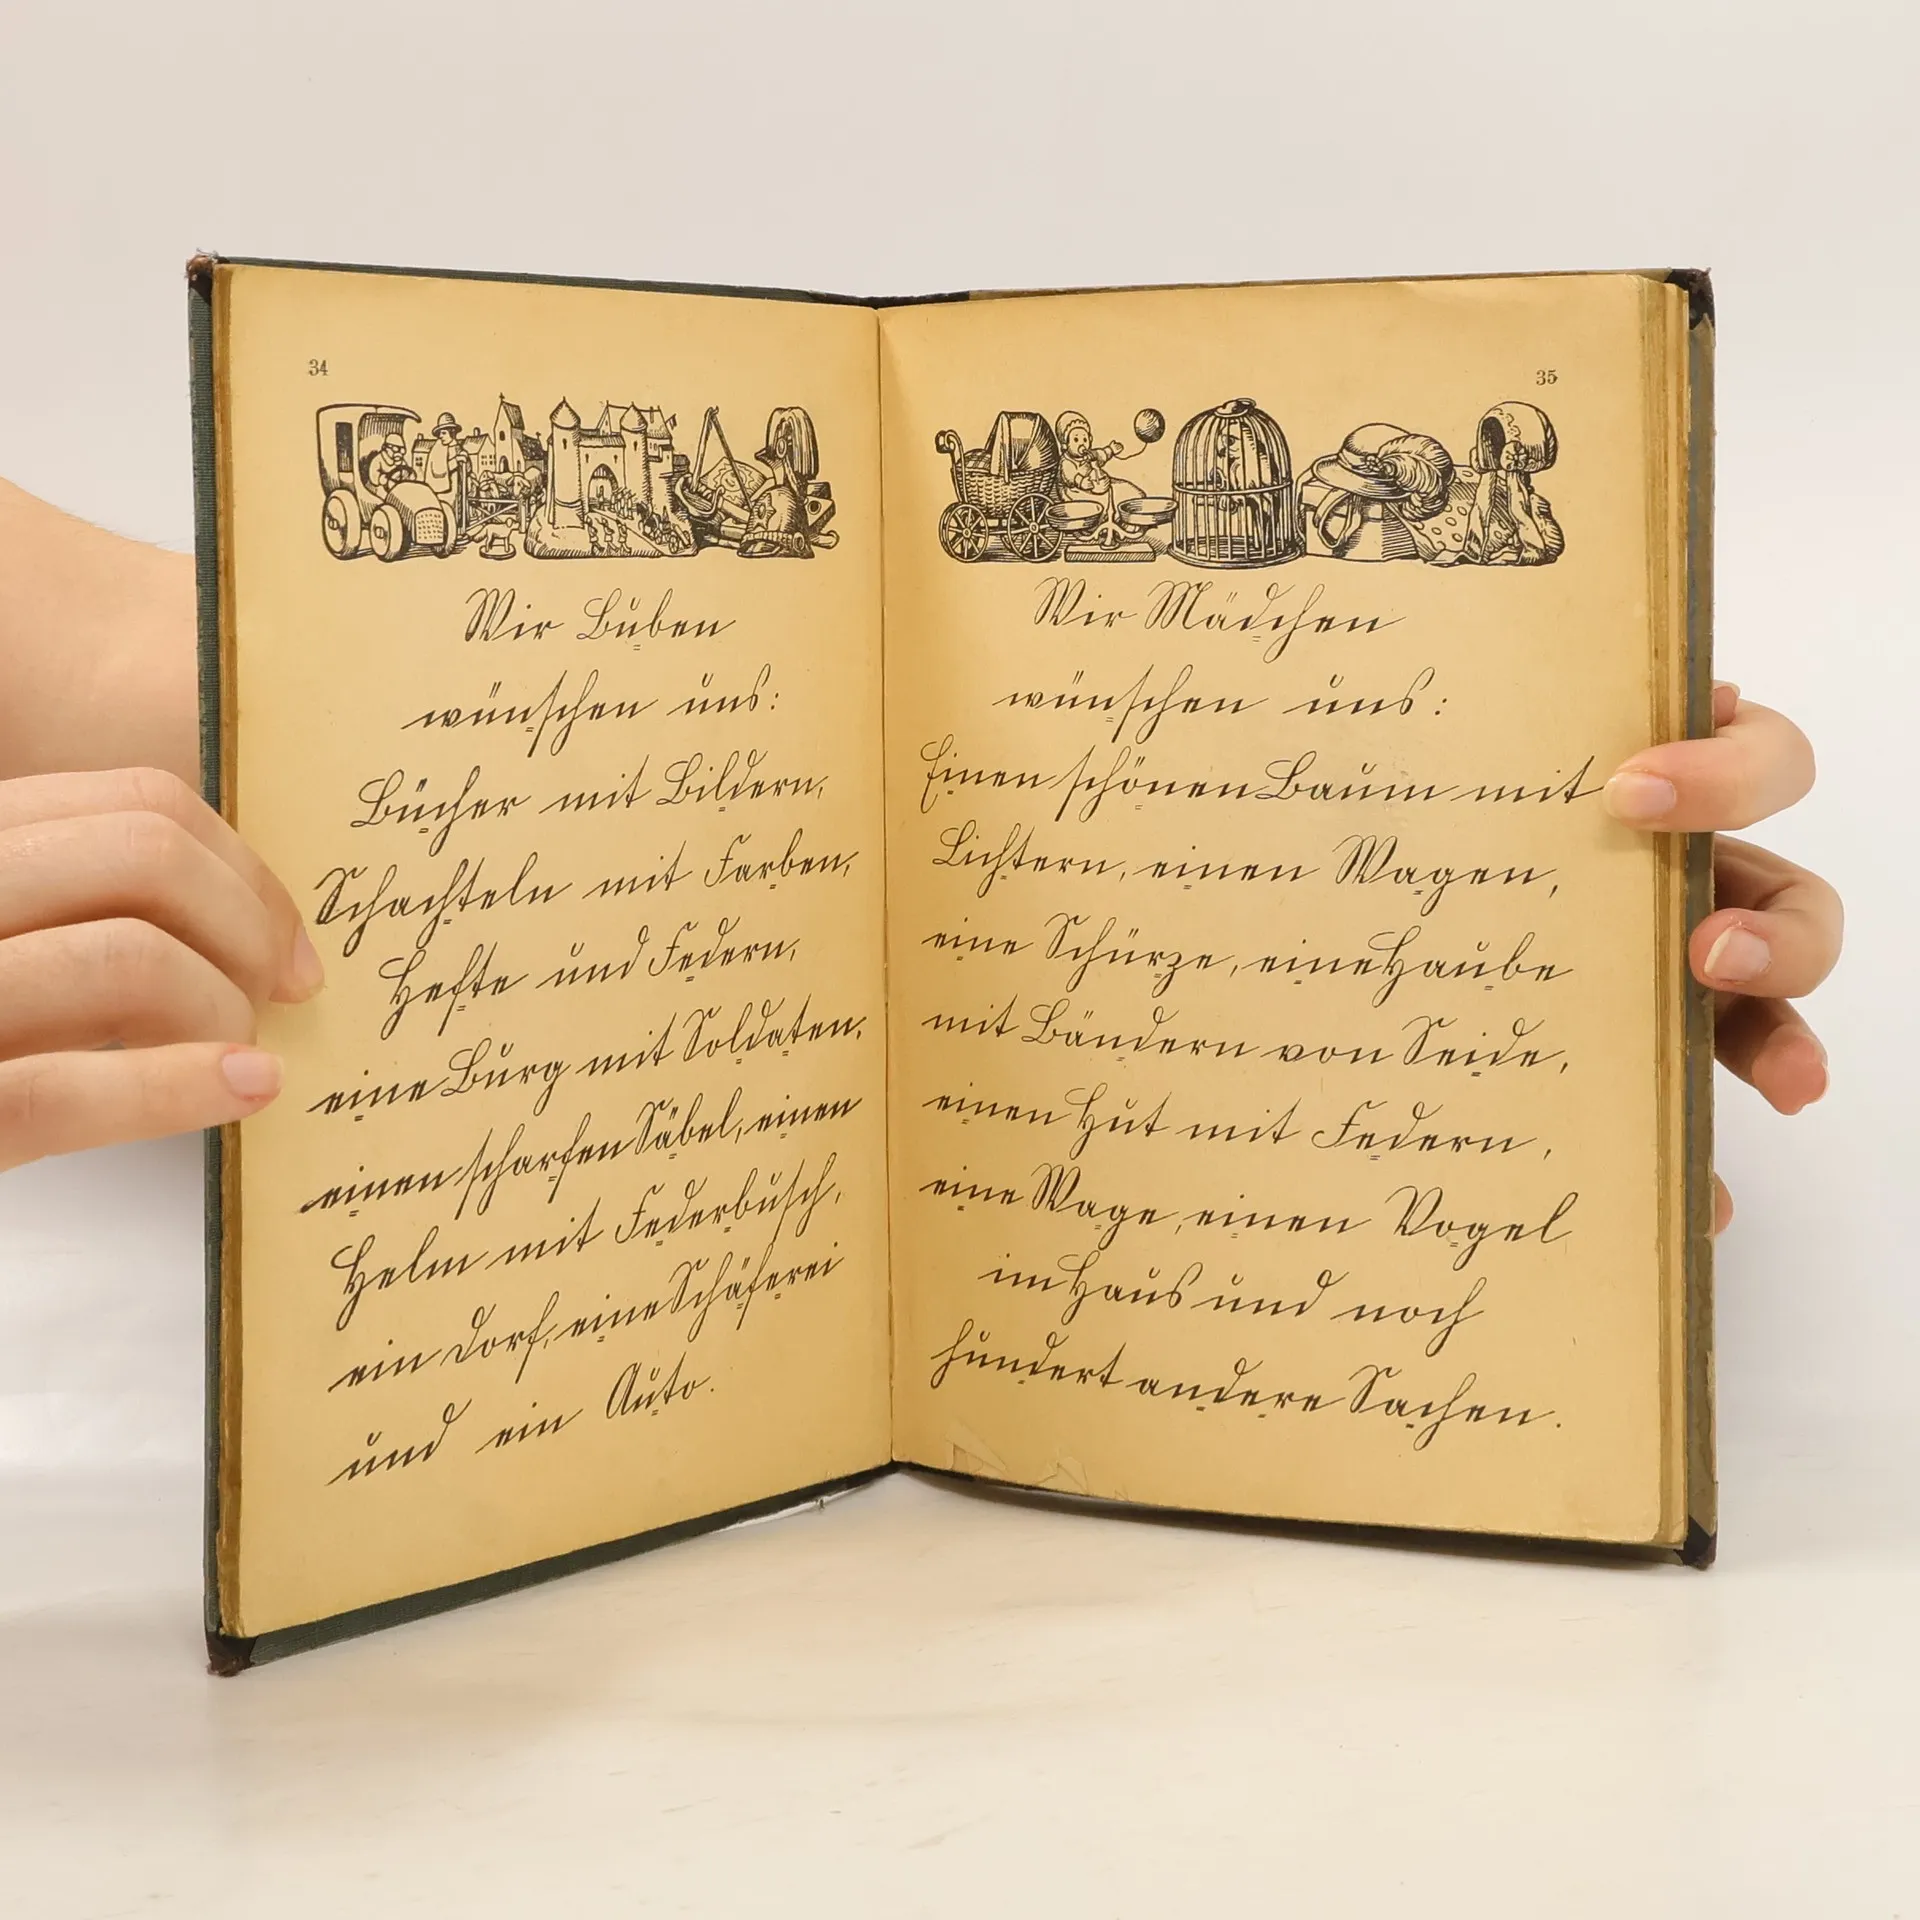 34
Wir Buben
wünschen uns:
Bücher mit Bildern,
Schachteln mit Farben,
Hefte und Federn,
eine Burg mit Soldaten,
einen scharfen Säbel, einen
Helm mit Federbusch,
ein Dorf, eine Schäferei
und ein Auto.
35
Wir Mädchen
wünschen uns:
Einen schönen Baum mit
Lichtern, einen Wagen,
eine Schürze, eine Haube
mit Bändern von Seide,
einen Hut mit Federn,
eine Wage, einen Vogel
im Haus und noch
hundert andere Sachen.